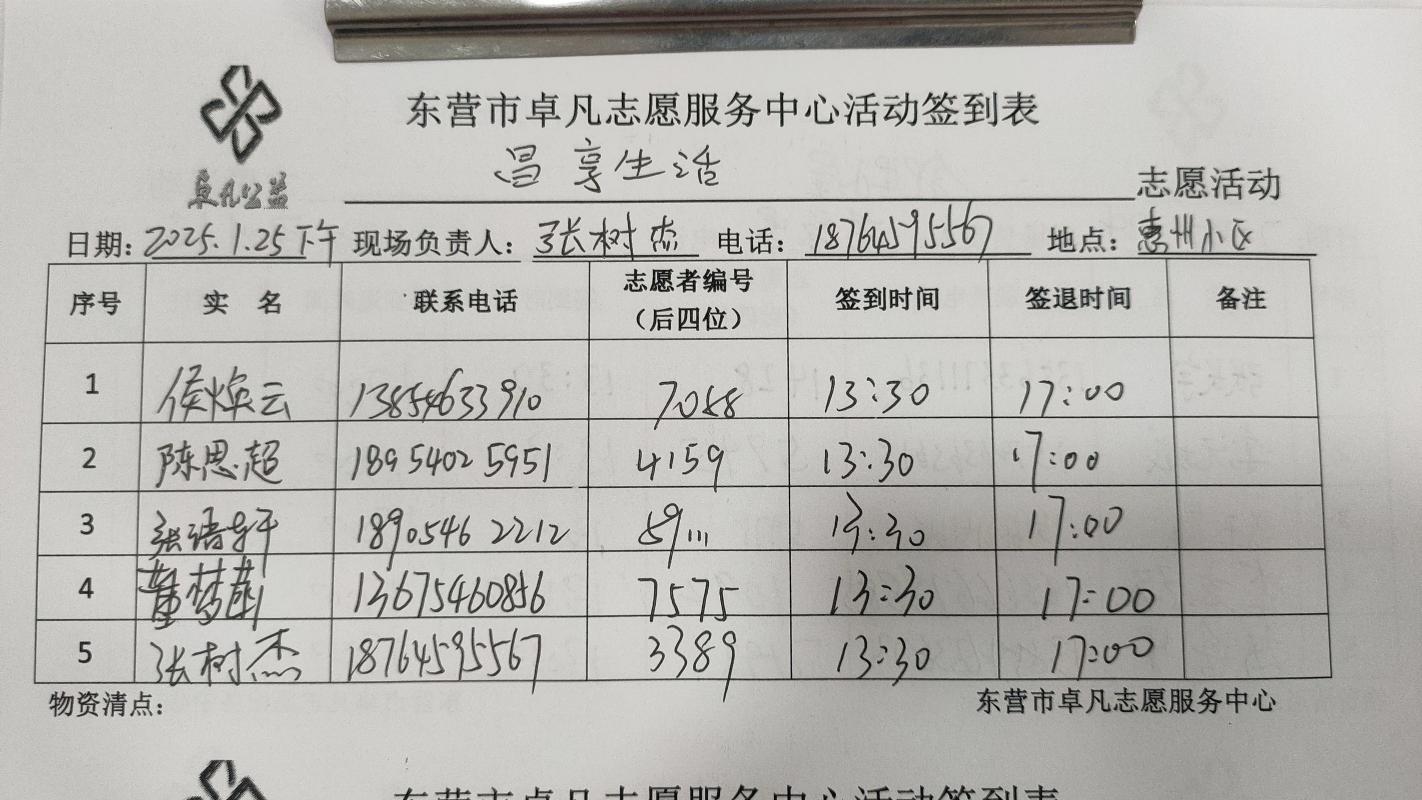 东营市卓凡志愿服务中心活动签到表
卓凡公益
昌享生活 志愿活动
日期：2025.1.25下午 现场负责人：张树杰 电话：18764595567 地点：惠州小区
序号 实 名 联系电话 志愿者编号（后四位） 签到时间 签退时间 备注
1 侯焕云 13854633910 7088 13:30 17:00
2 陈思超 18954025951 4159 13:30 17:00
3 张语轩 18905462212 13:30 17:00
4 董梦茹 13675460856 7575 13:30 17:00
5 张树杰 18764595567 3389 13:30 17:00
物资清点： 东营市卓凡志愿服务中心
东营市卓凡志愿服务中心活动签到表